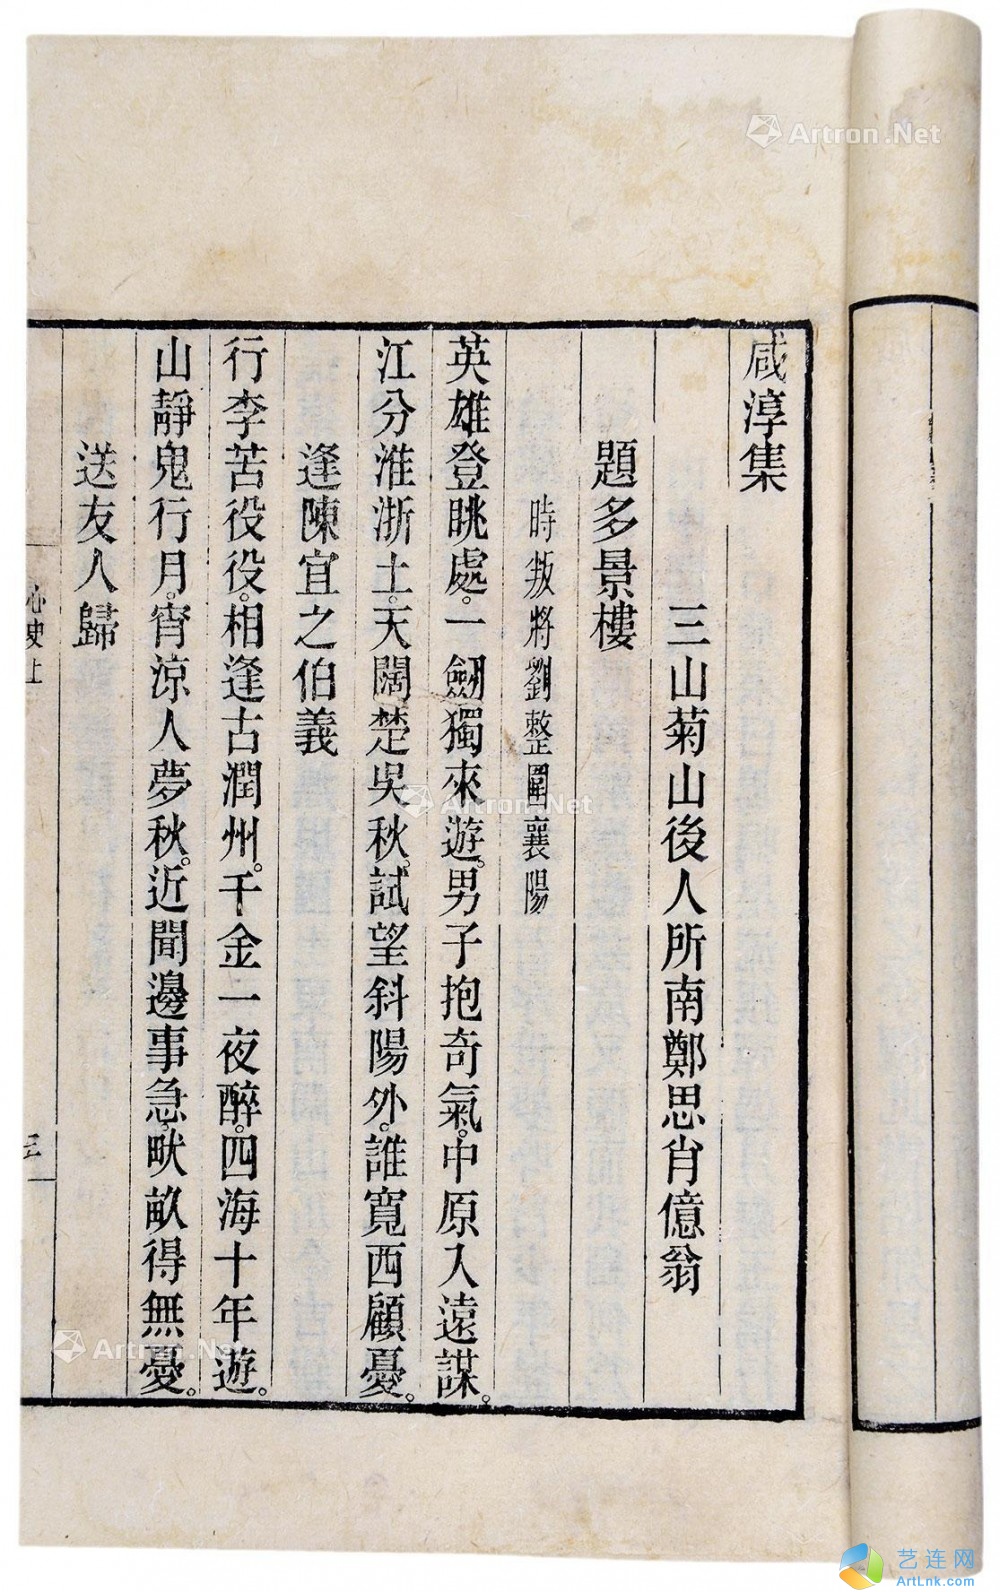 咸淳集
三山菊山後人所南鄭思肖億翁
題多景樓
時叛將劉整圍襄陽
英雄登眺處。一劒獨來遊。男子抱奇氣。中原入遠謀。
江分淮浙土。天闊楚吳秋。試望斜陽外。誰寬西顧憂。
逢陳宜之伯義
行李苦役役。相逢古潤州。千金一夜醉。四海十年遊。
山靜鬼行月。宵涼人夢秋。近聞邊事急。畎畝得無憂。
送友人歸
心史上
三
Artron.Net
Artron.Net
Artron.Net
艺连网
ArtLnk.com